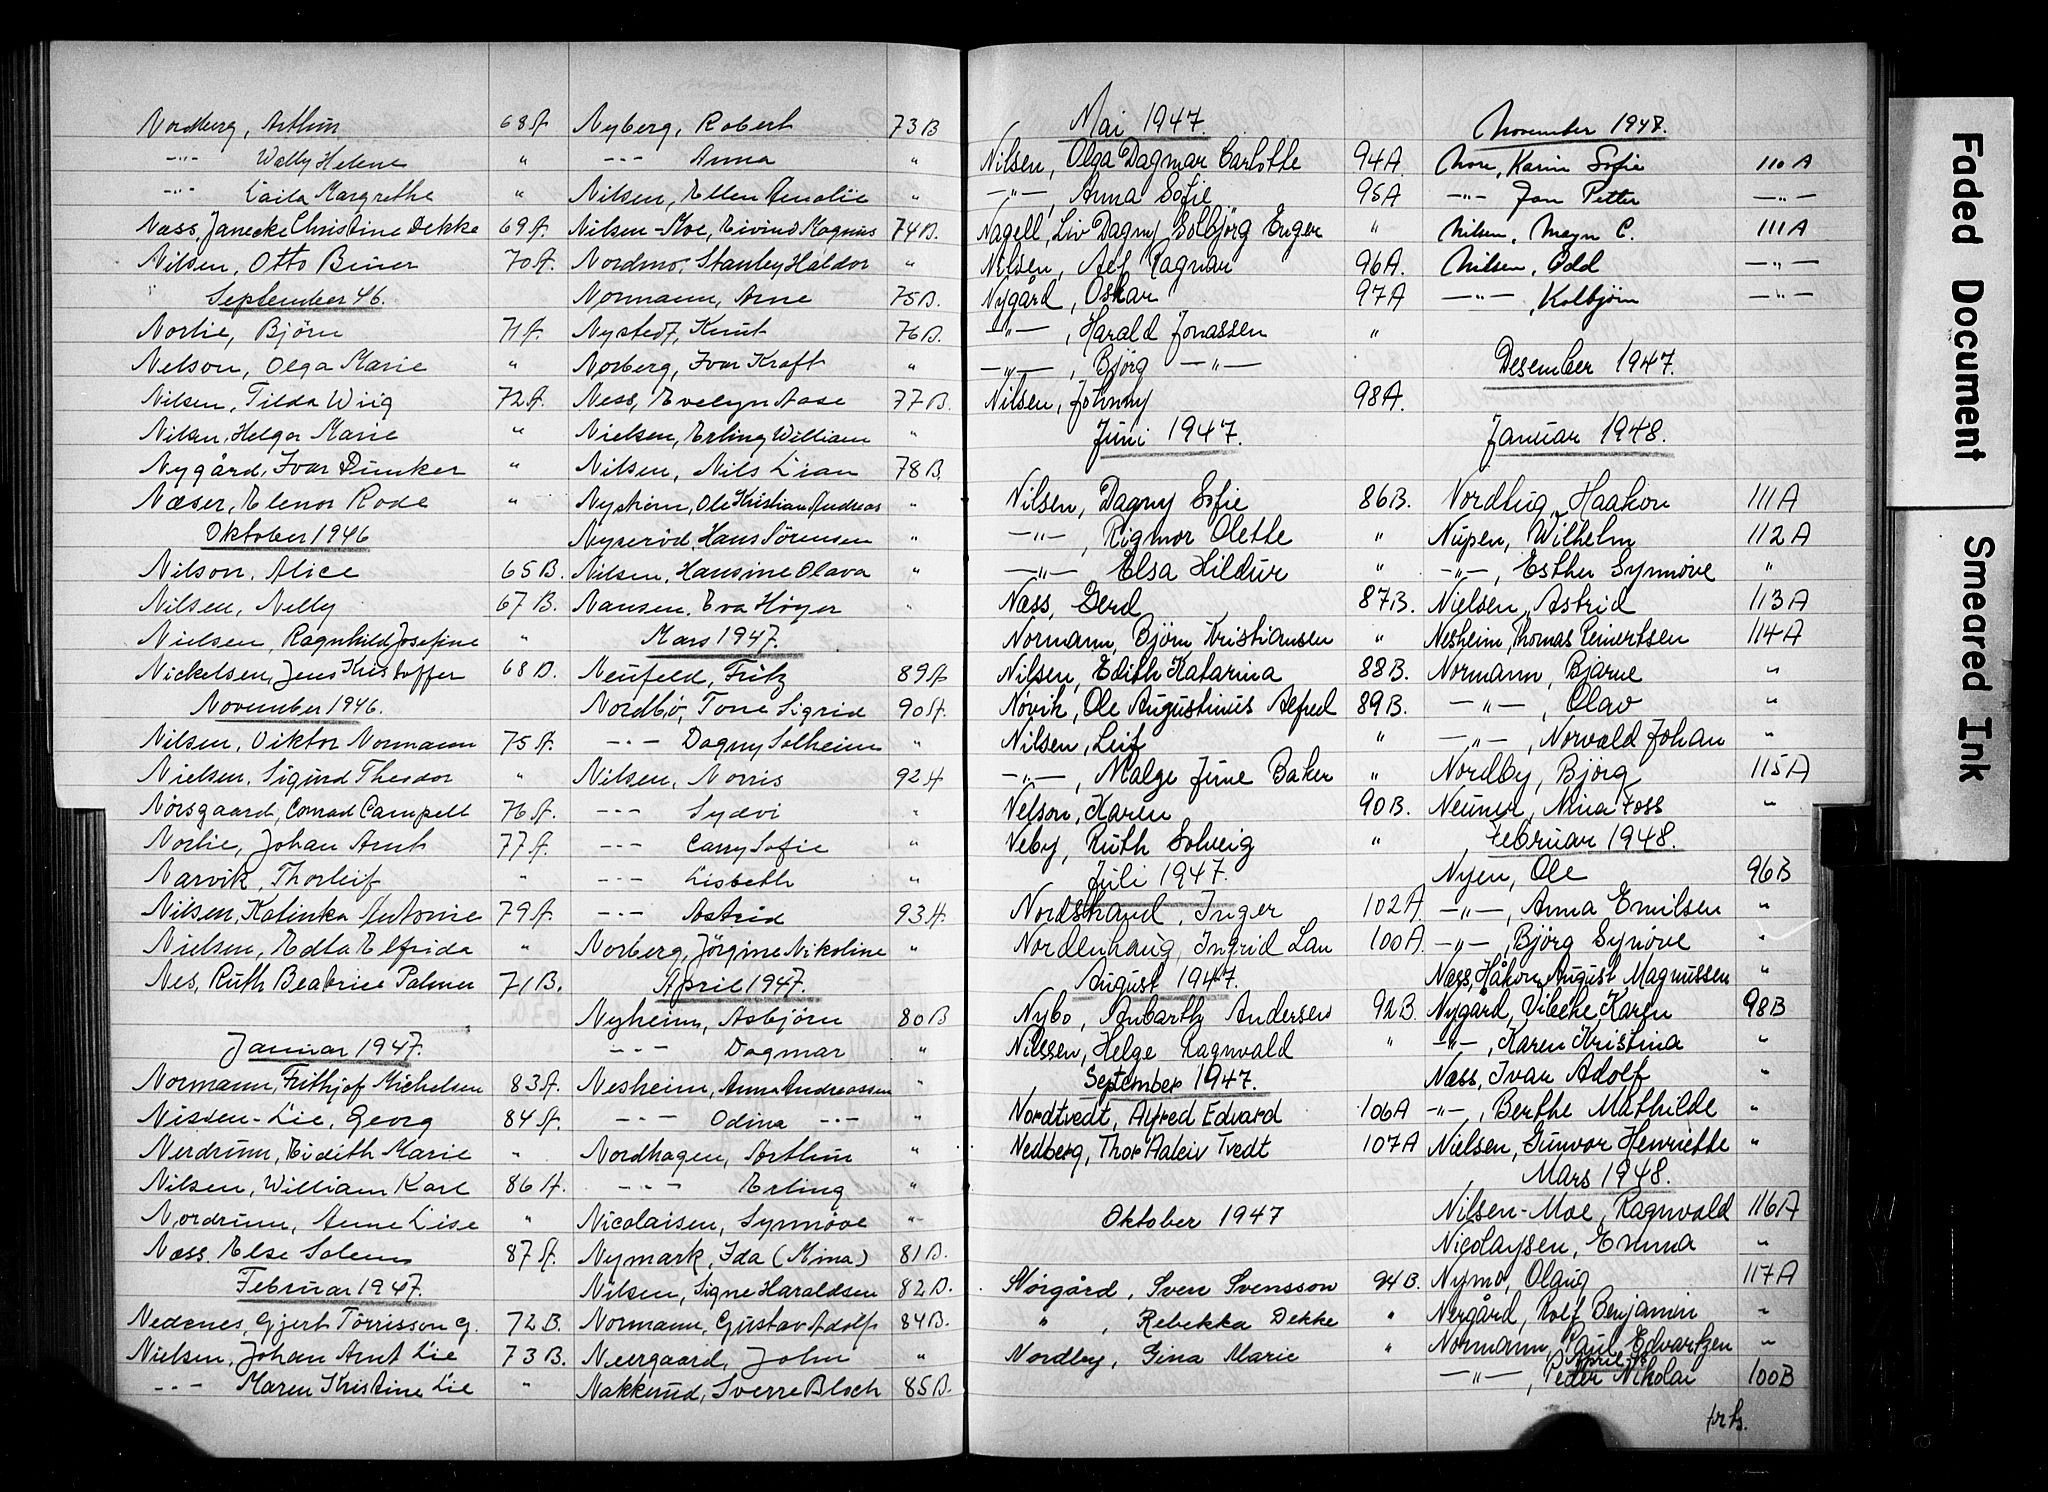 Nordberg, Arthur 68 A.
-"- Wally Helene "
-"- Laila Margrethe "
Næss, Janecke Christine Dekke 69 A.
Nilsen, Otto Biner 70 A.
September 46.
Norlie, Bjørn 71 A.
Nelson, Olga Marie "
Nilsen, Tilda Wiig 72 A.
Nilsen, Helga Marie "
Nygård, Ivar Dunker "
Næser, Elenor Rode "
Oktober 1946
Nilson, Alice 65 B.
Nilsen, Nelly 67 B.
Nielsen, Ragnhild Josefine "
Nickelsen, Jens Kristoffer 68 B.
November 1946.
Nilsen, Viktor Normann 75 A.
Nielsen, Sigurd Theodor "
Nørsgaard, Conrad Campell 76 A.
Norlie, Johan Arnt 77 A.
Narvik, Thorleif "
Nilsen, Katinka Antonie 79 A.
Nielsen, Edta Elfrida "
Nes, Ruth Beatrice Palmer 71 B.
Januar 1947.
Normann, Frithjof Michelsen 83 A.
Nissen-Lie, Georg 84 A.
Nerdrum, Eidith Marie "
Nilsen, William Karl 86 A.
Nordrum, Anne Lise "
Næss, Else Solem 87 A.
Februar 1947.
Nedenes, Gjert Tørrisson G. 72 B.
Nielsen, Johan Arnt Lie 73 B.
-"- Maren Kristine Lie "
Nyberg, Robert 73 B
-"- Anna "
Nilsen, Ellen Amalie "
Nilsen-Moe, Eivind Magnus 74 B.
Nordmo, Stanley Haldor "
Normann, Arne 75 B.
Nystedt, Knut 76 B.
Norberg, Ivar Kraft "
Ness, Evelyn Aase 77 B.
Nielsen, Erling William "
Nilsen, Nils Lian 78 B.
Nystrøm, Ole Kristian Andreas "
Nyserød, Hans Sørensen "
Nilsen, Hansine Olava "
Nansen, Eva Høyer "
Mars 1947.
Neufeld, Fritz 89 A
Nordbø, Tone Sigrid 90 A.
-"- Dagny Solheim "
Nilsen, Norris 92 A
-"- Sydvi "
-"- Carry Sofie "
-"- Lisbeth "
-"- Astrid 93 A
Norberg, Jörgine Nikoline "
April 1947.
Nyheim, Asbjørn 80 B
-"- Dagmar "
Nesheim, Anna Andreassen "
-"- Odina -"- "
Nordhagen, Arthur "
-"- Erling "
Nicolaisen, Synnøve "
Nymark, Ida (Mina) 81 B.
Nilsen, Signe Haraldsen 82 B.
Normann, Gustav Adolf 84 B.
Neergaard, John "
Nakkerud, Sverre Bloch 85 B.
Mai 1947.
Nilsen, Olga Dagmar Carlotte 94 A.
-"-, Anna Sofie 95 A
Nagell, Liv Dagny Solbjörg Enger "
Nilsen, Alf Ragnar 96 A.
Nygård, Oskar 97 A
-"-, Harald Jonassen "
-"-, Bjørg -"-
Nilsen, Johnny 98 A.
Juni 1947.
Nilsen, Dagny Sofie 86 B.
-"-, Rigmor Olette "
-"- Elsa Hildur "
Næss, Gerd 87 B.
Normann, Bjørn Kristiansen "
Nilsen, Edith Katarina 88 B.
Nøvik, Ole Augustinus Alfred 89 B.
Nilsen, Leif "
-"-, Malge June Baker "
Nelson, Karen 90 B.
Neby, Ruth Solveig "
Juli 1947.
Nordstrand, Inger 102 A.
Nordenhaug, Ingrid Lau 100 A.
August 1947.
Nybo, Andersen 92 B.
Nilssen, Helge Ragnvald "
September 1947.
Nordtvedt, Alfred Edvard 106 A
Nedberg, Thor Adleiv Tvedt 107 A
Oktober 1947
Nörgård, Sven Svensson 94 B.
", Rebekka Dekke "
Nordby, Gina Marie "
November 1947.
More, Karin Sofie 110 A
-"- Jan Petter -"-
Nilsen, Mayn C. 111 A
Nilsen, Odd -"-
-"-, Kolbjørn -"-
Desember 1947.
Januar 1948.
Nordtug, Haakon 111 A
Nupen, Wilhelm 112 A
-"-, Esther Synnøve "
Nielsen, Astrid 113 A
Nesheim, Thomas Reinertsen 114 A
Normann, Bjarne "
-"-, Olav "
-"-, Norvald Johan "
Nordby, Bjørg 115 A
Neuner, Nina Foss "
Februar 1948.
Nyen, Ole 96 B
-"-, Anna Emilsen "
-"-, Bjørg Synøve "
Næss, Håkon August Magnussen "
Nygard, Vibeke Karen 98 B
-"-, Karen Kristina "
Næss, Ivar Adolf "
-"-, Berthe Mathilde "
Nielsen, Gunvor Henriette "
Mars 1948.
Nilsen-Moe, Ragnvald 116 A
Nicolaysen, Emma "
Nymo, Olgug 117 A
Nergård, Rolf Benjamin "
Normann, Paul Edvartzen "
April 48
-"-, Peder Nikolai 100 B
frh.
Faded Document
Smeared Ink